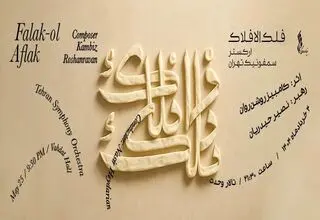 Falak-ol
Aflak
Composer
Kambiz
Roshanravan
Tehran Symphony Orchestra
May 25 / 9:30 PM / Vahdat Hall
Conductor: Nassir Heydarian
فلک‌الافلاک
فلک‌الافلاک
ارکستر
سمفونیک تهران
اثر: کامبیز روشن‌روان
رهبر: نصیر حیدریان
ساعت ۲۱:۳۰ / تالار وحدت